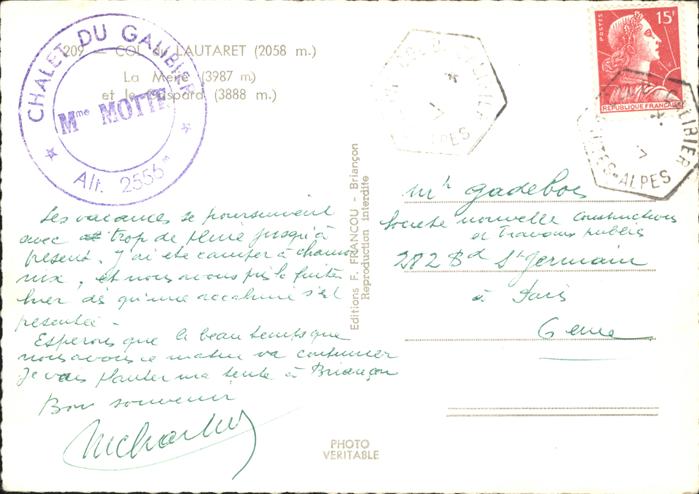 209 - COL du LAUTARET (2058 m.)
La Meije (3987 m)
et le Gaspard (3888 m.)
CHALET DU GALIBIER
Mme MOTTE
Alt. 2555m
Les vacances se poursuivent
avec trop de pluie jusqu'à
présent. J'ai été camper à chamo
nix, et nous avons pris la fuite
hier dès qu'une accalmie s'est
présentée.
Espérons que le beau temps que
nous avons ce matin va continuer
Je vais planter ma tente à Briançon
Bon souvenir
Editions F. FRANCOU - Briançon
Reproduction interdite
PHOTO
VERITABLE
POSTES
15F
REPUBLIQUE FRANCAISE
GALIBIER
HAUTES-ALPES
Mr Gadebois
Société nouvelle Constructions
et Travaux publics
282 Bd St Germain
à Paris